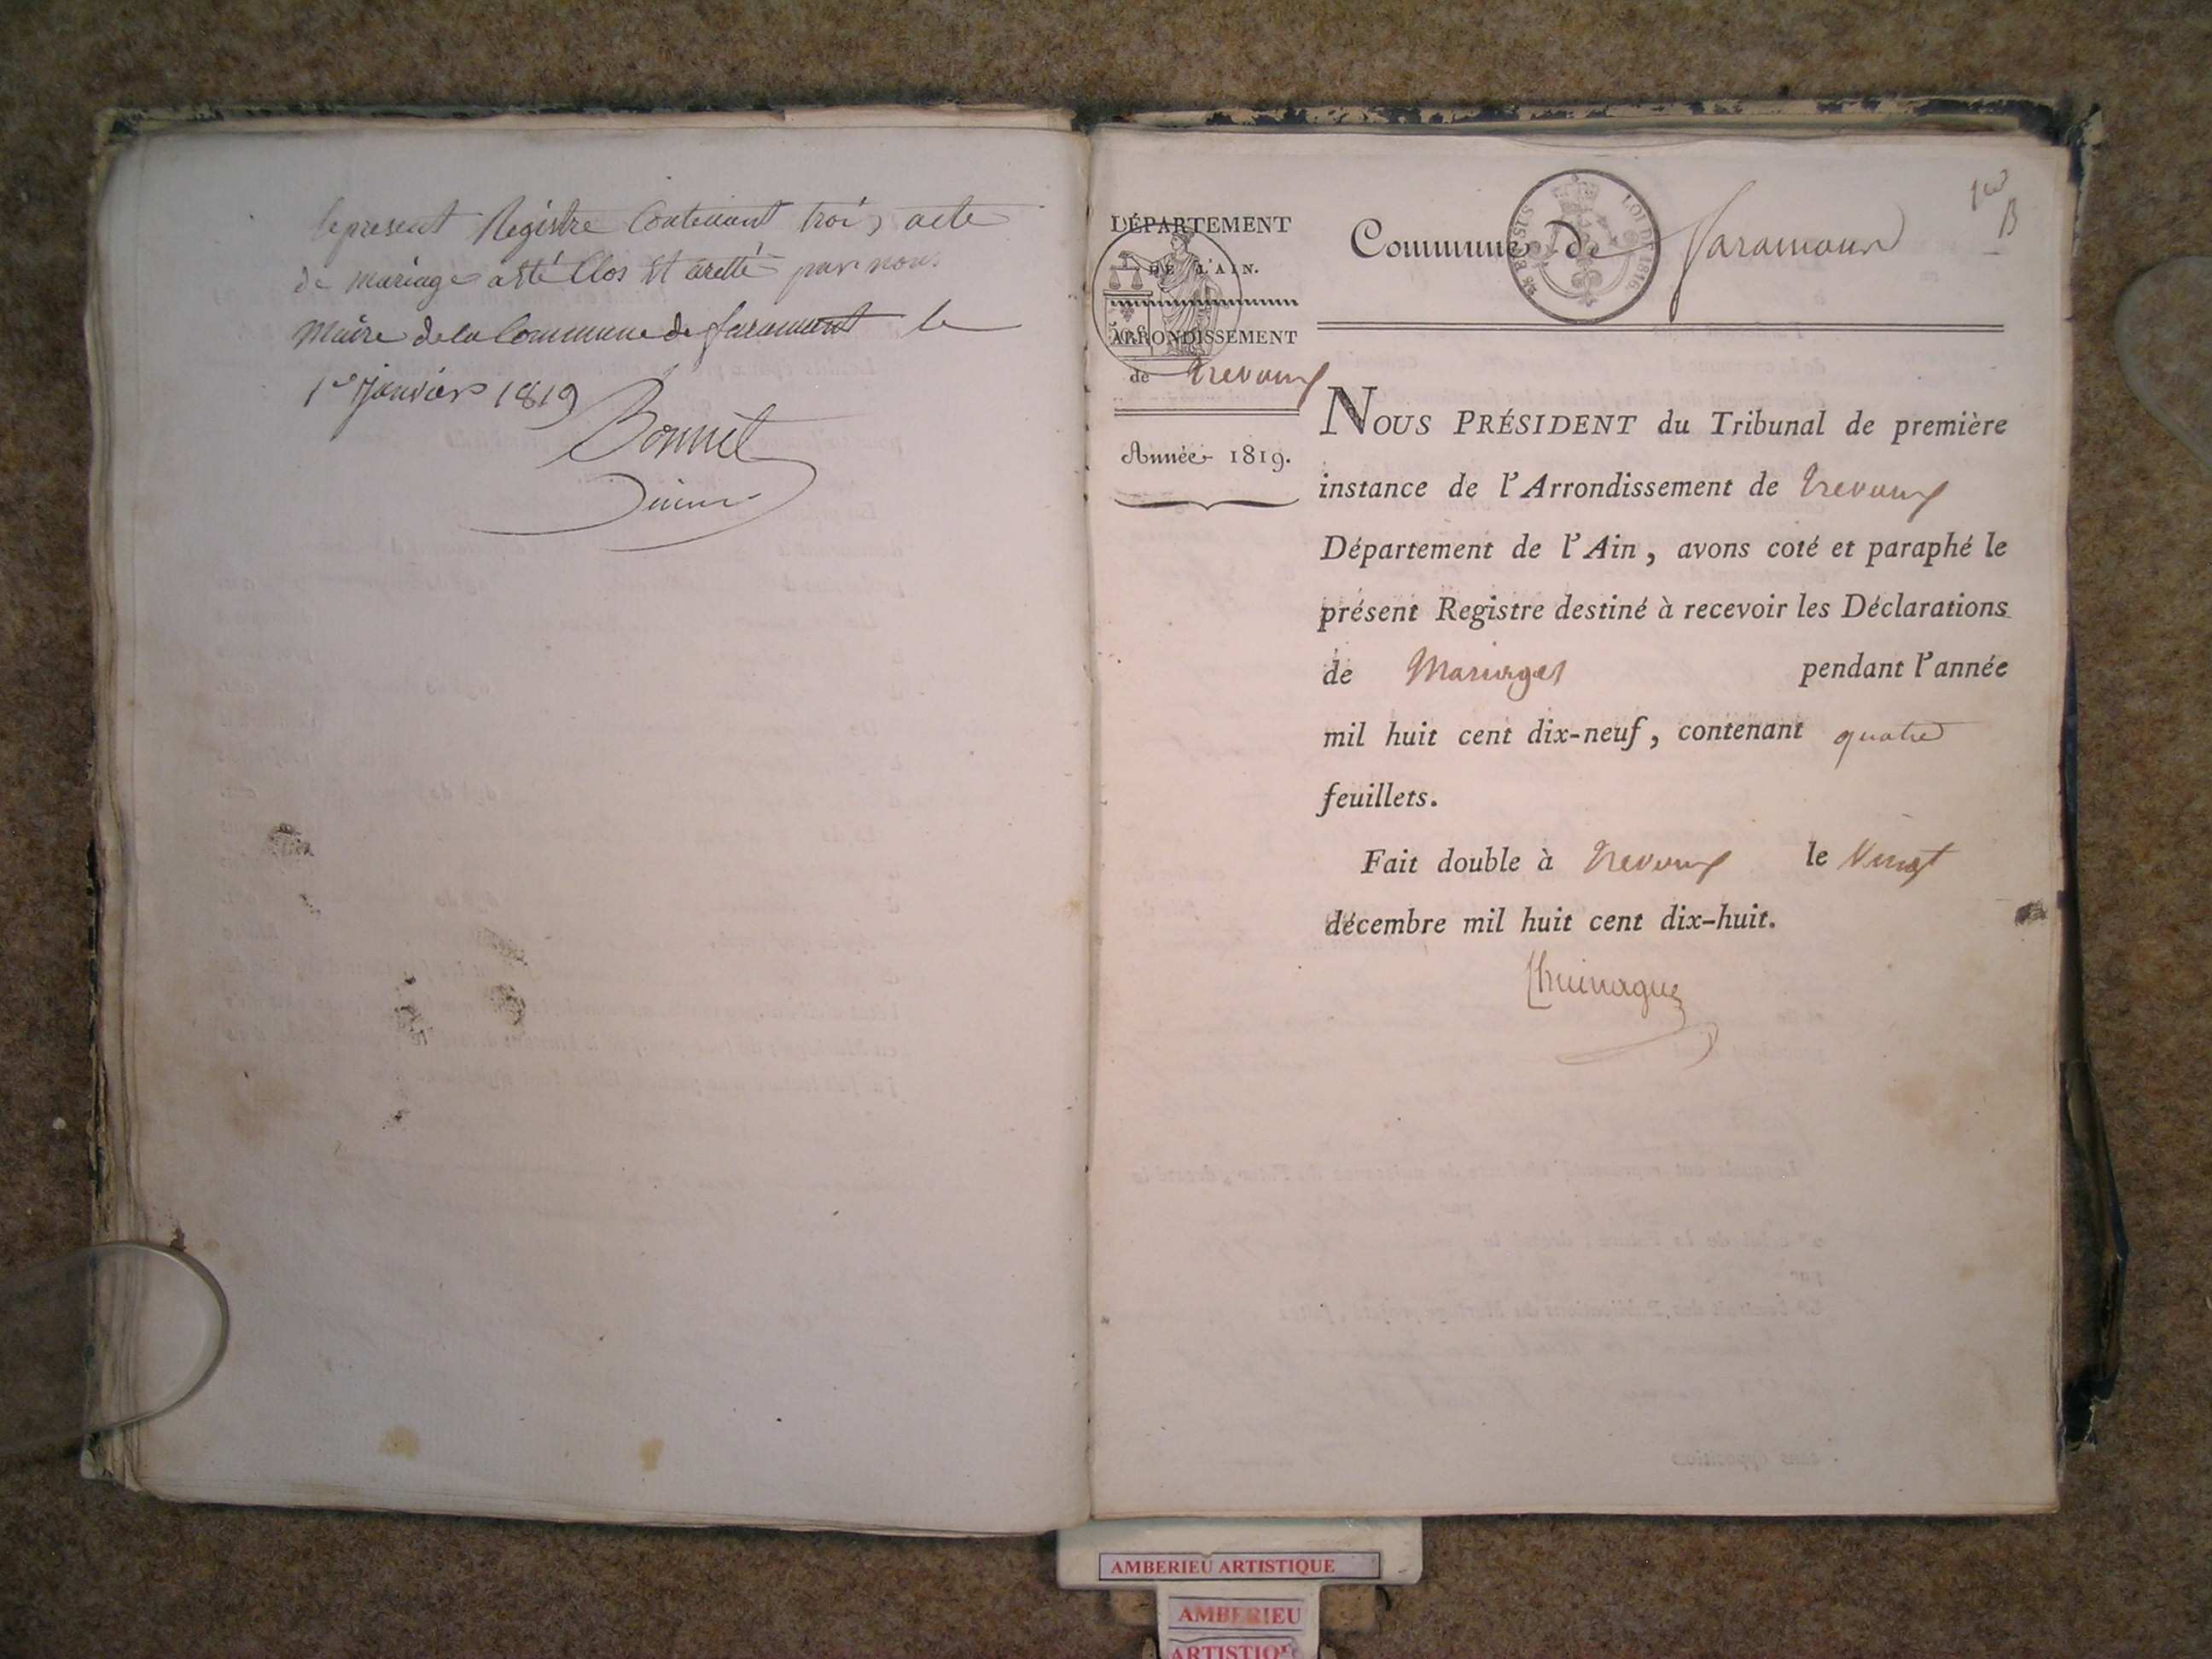 le present Registre Contenant trois acte
de mariage a été Clos Et aretté par nous
Maire de la Commune de faramant le
1er Janvier 1819
Bonnet
Maire
DÉPARTEMENT
DE L'AIN.
ARRONDISSEMENT
de Trevoux
Année 1819.
Commune de Faramand
LOI DE 1816
NOUS PRÉSIDENT du Tribunal de première
instance de l'Arrondissement de Trevoux
Département de l'Ain, avons coté et paraphé le
présent Registre destiné à recevoir les Déclarations
de Mariages pendant l'année
mil huit cent dix-neuf, contenant quatre
feuillets.
Fait double à Trevoux le Vingt
décembre mil huit cent dix-huit.
AMBERIEU ARTISTIQUE
AMBERIEU
ARTISTIQUE